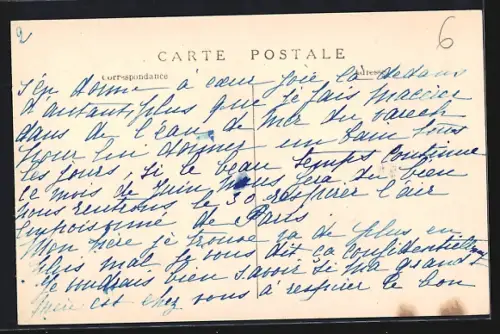 2
6
CARTE POSTALE
Correspondance
Adresse
s'en donne à cœur joie là dedans
d'autant plus que je fais macérer
dans de l'eau de mer du varech
pour lui donner un bain tous
les jours, si le beau temps continue
ce mois de Juin, nous fera du bien
nous rentrons le 30 respirer l'air
empoisonné de Paris
Mon père je trouve va de plus en
plus mal je vous dit ça confidentiellement
Je voudrais bien savoir si ma grand
mère est chez vous à respirer le bon